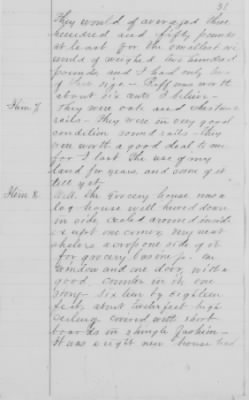 31
They would of averaged three
hundred and fifty pounds
at least for the smallest we
would of weighed two hundred
pounds and I had only two
of this size - Beef was worth
about six cents I believe -
Item 7 They were oak and chestnut
rails - They were in very good
condition sound rails - They
were worth a good deal to me
for I lost the use of my
land for years, and some of it
till yet
Item 8 The Grocery house was a
log house well hewed down
in side ceiled around inside
except one corner, very neat
shelves across one side of it
for grocery business
window and one door, with a
good counter in it one
story - Sixteen by eighteen
feet, about twelve feet high
ceiling covered with short
boards in shingle fashion -
It was a right new house had